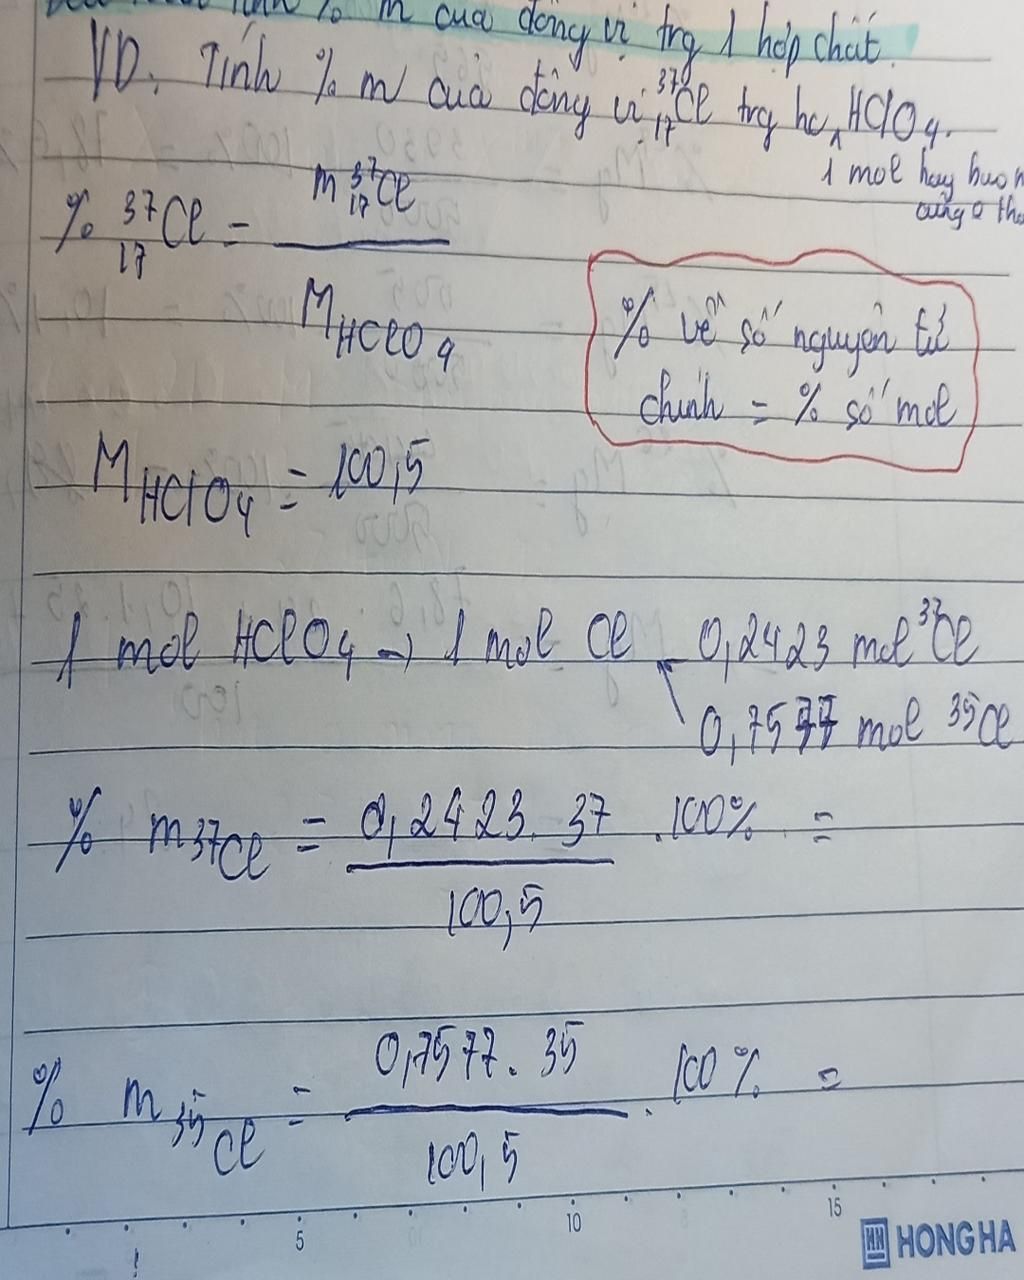 Tính % m của đồng vị trg 1 hợp chất.
VD. Tính % m của đồng vị ³⁷₁₇Cl trg hc HClO₄.
1 mol hay bao n
cũng o tha
% ³⁷₁₇Cl = m ³⁷₁₇Cl
M HClO₄
% về số nguyên tử
chính = % số mol
M HClO₄ = 100,5
1 mol HClO₄ → 1 mol Cl 0,2423 mol ³⁷Cl
0,7577 mol ³⁵Cl
% m ³⁷Cl = 0,2423. 37 .100% =
100,5
% m ³⁵Cl = 0,7577. 35 . 100% =
100,5
5 10 15
HONG HA